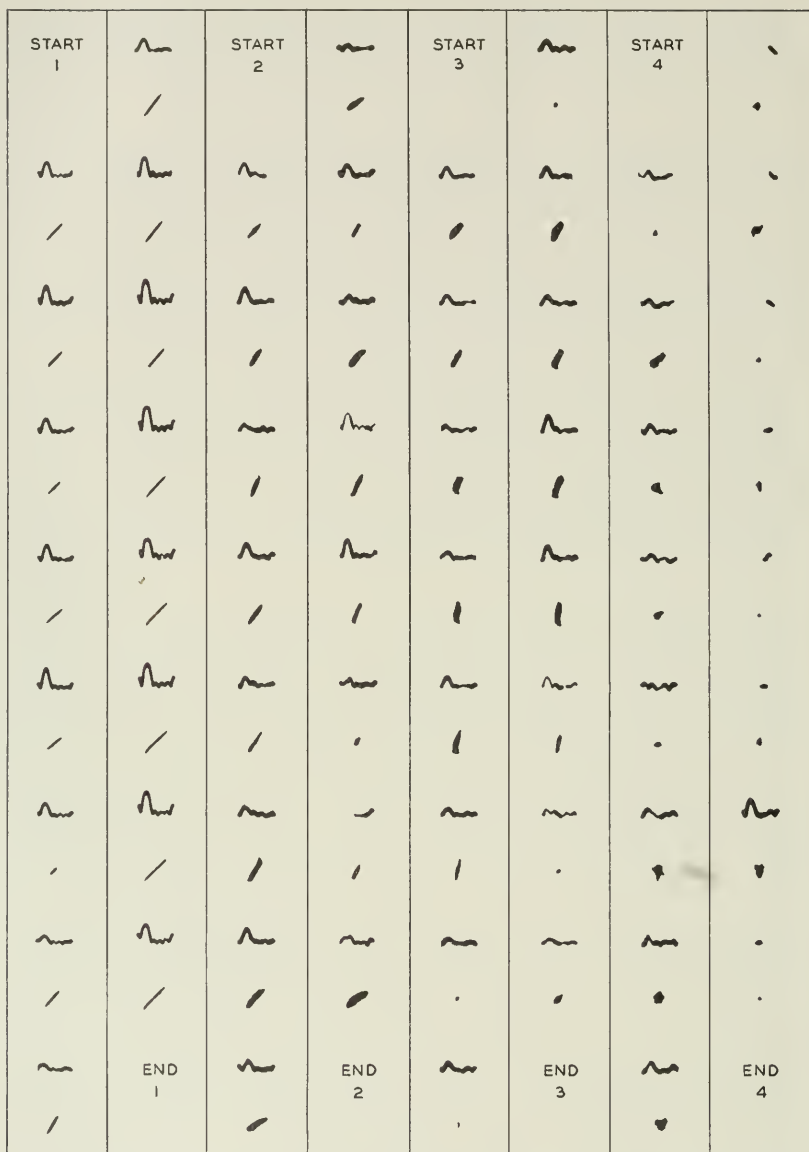 START
1
START
2
START
3
START
4
END
1
END
2
END
3
END
4